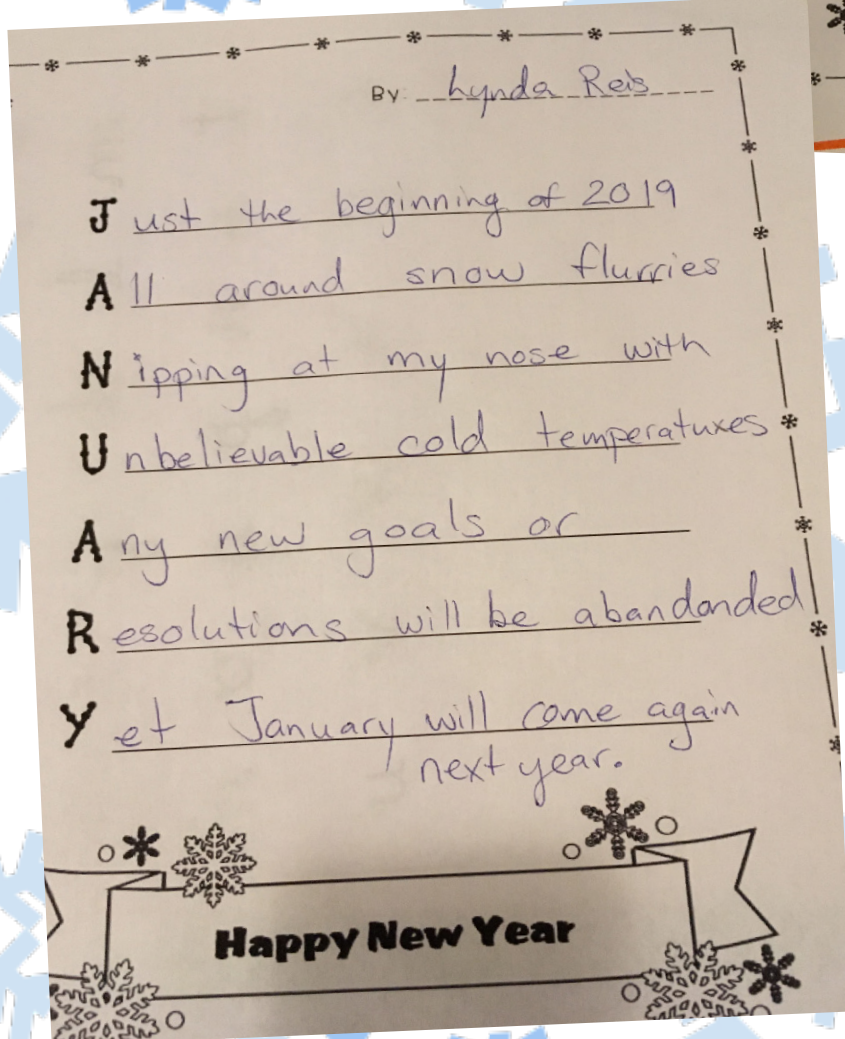 By: Lynda Reis
Just the beginning of 2019
All around snow flurries
Nipping at my nose with
Unbelievable cold temperatures
Any new goals or
Resolutions will be abandonded
Yet January will come again
next year.
Happy New Year